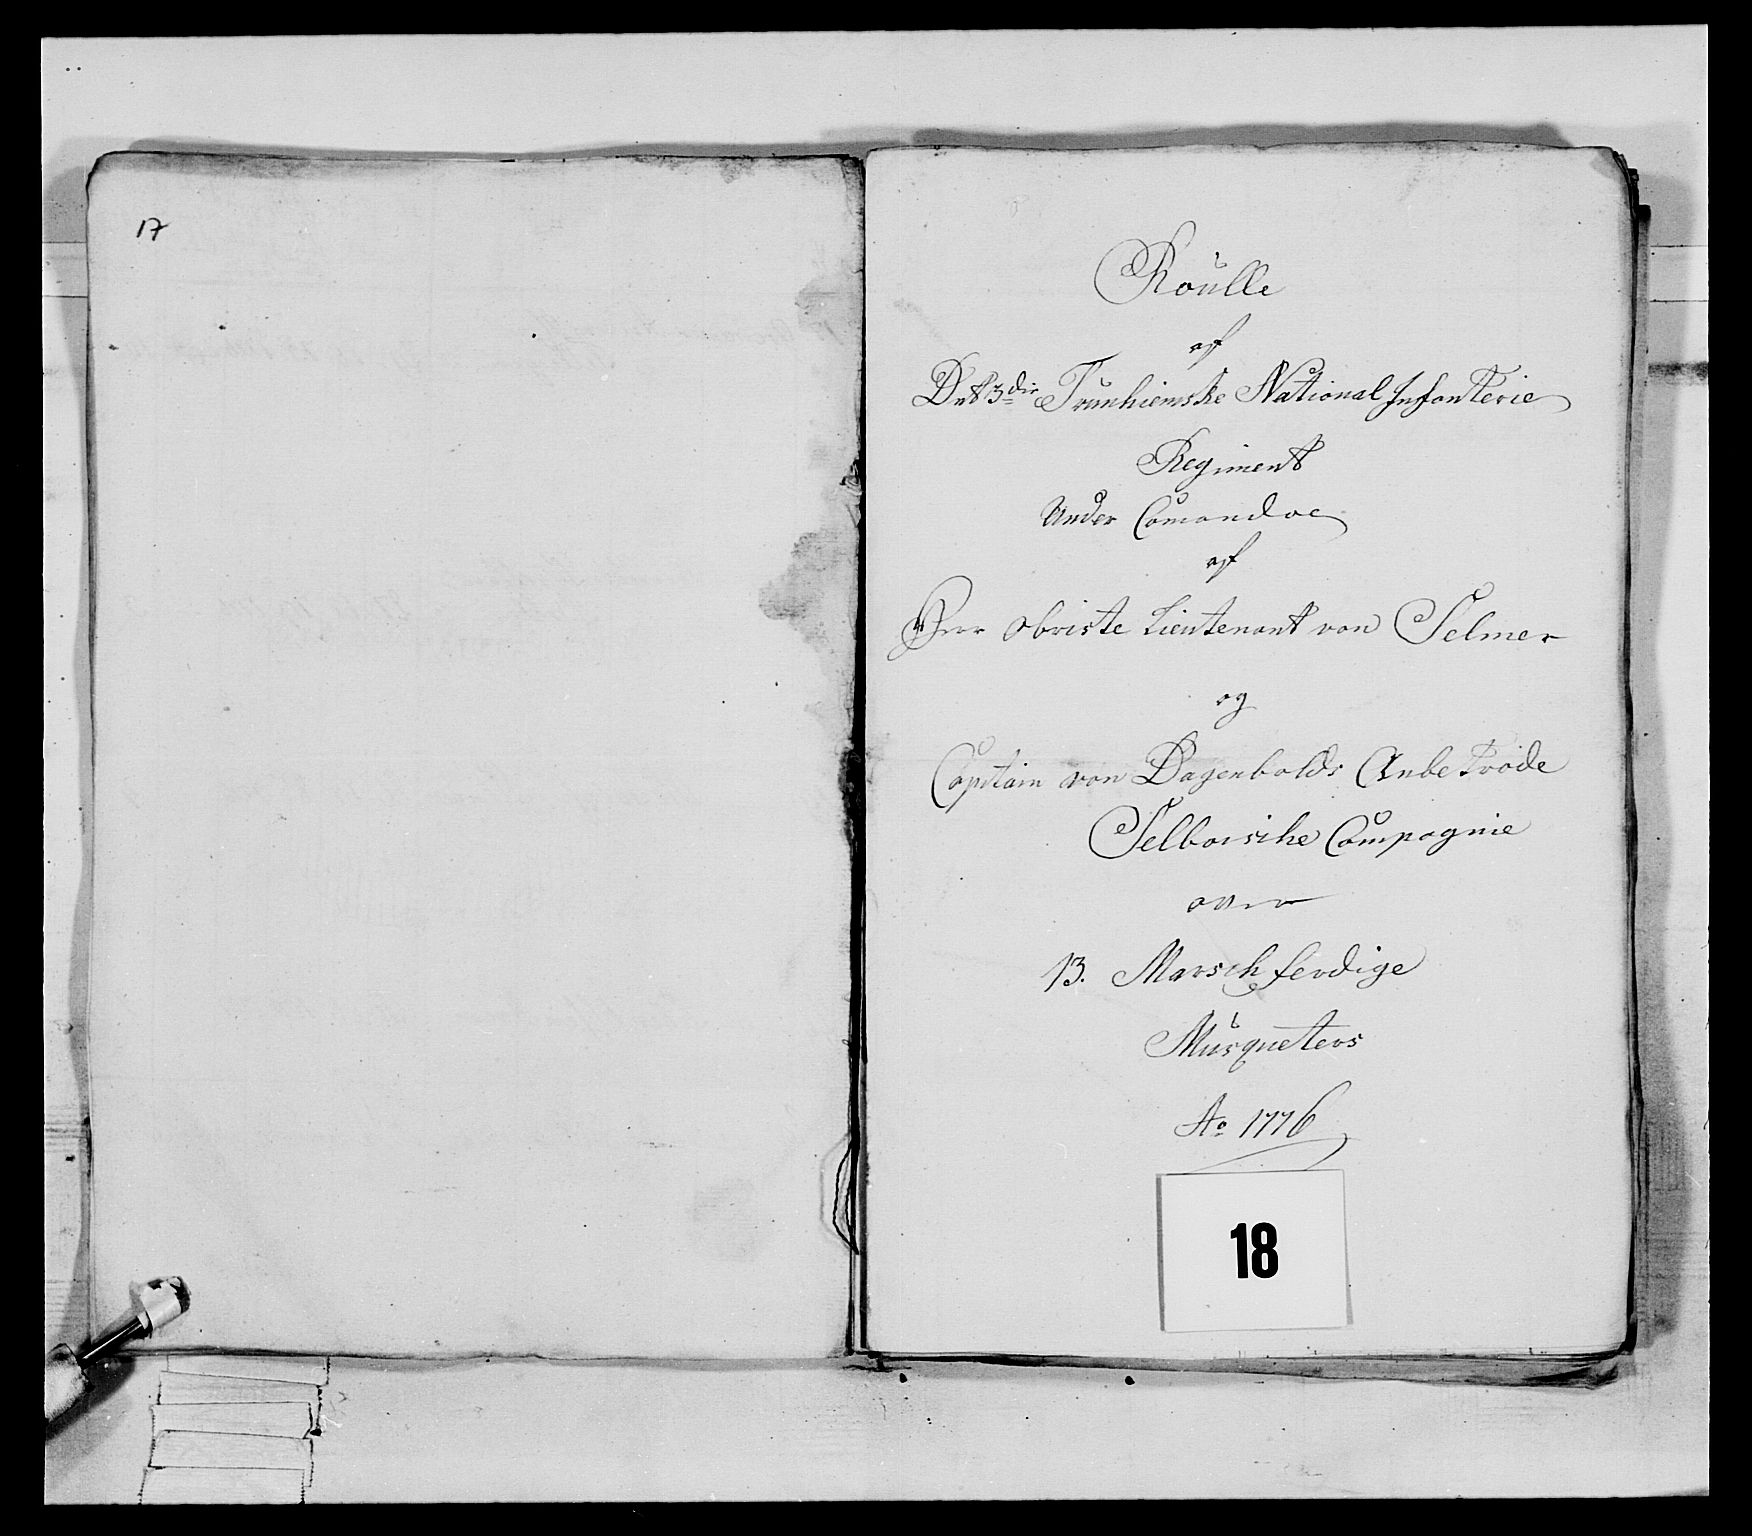 17
Roulle
af
Det 3die Trunhiemske National Infanterie
Regiment
Under Comandoe
af
Herr Obriste Lieutenant von Selmer
og
Capitain von Dagenbolds Anbetrøde
Selboische Compagnie
over
13. Marsch ferdige
Musqueters
Ao 1776
18